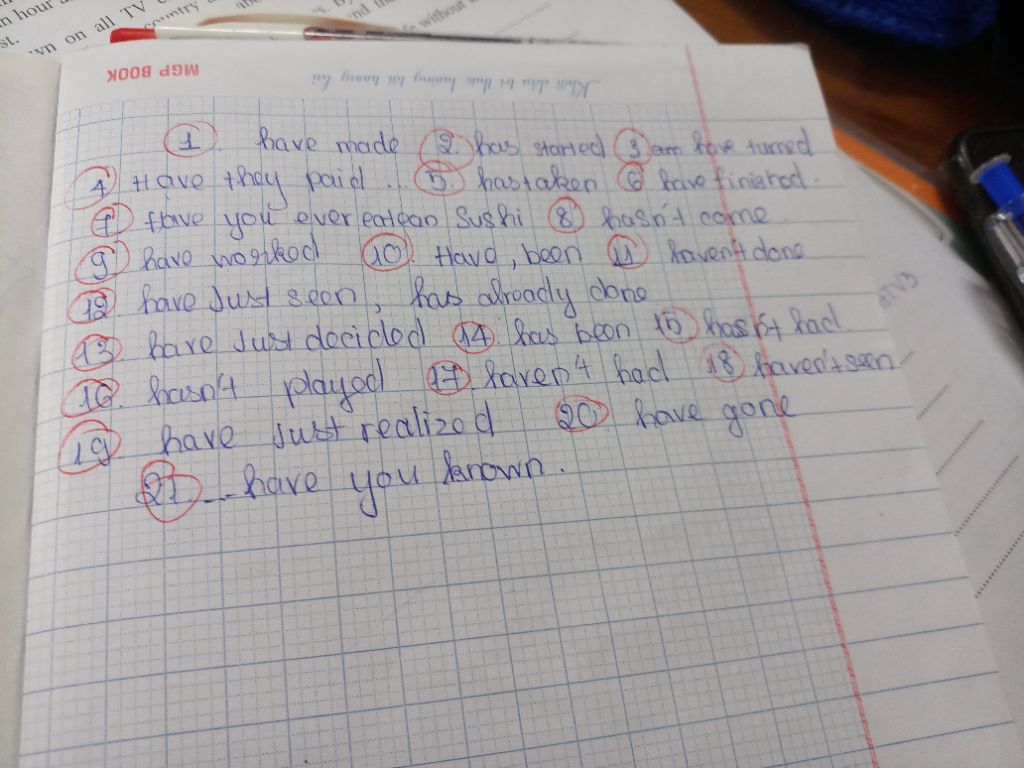 n hour
country
st.
wn on all TV
without
MGP BOOK
1 have made 2. has started 3 am have turned
4 Have they paid ... 5. has taken 6 have finished.
7 Have you ever eatean sushi 8 hasn't come
9 have worked 10. Have, been 11 haven't done
12 have just seen, has already done
13 have just decided 14. has been 15 hasn't had
16. hasn't played 17 haven't had 18 haven't seen
19 have just realized 20. have gone
21 ... have you known.